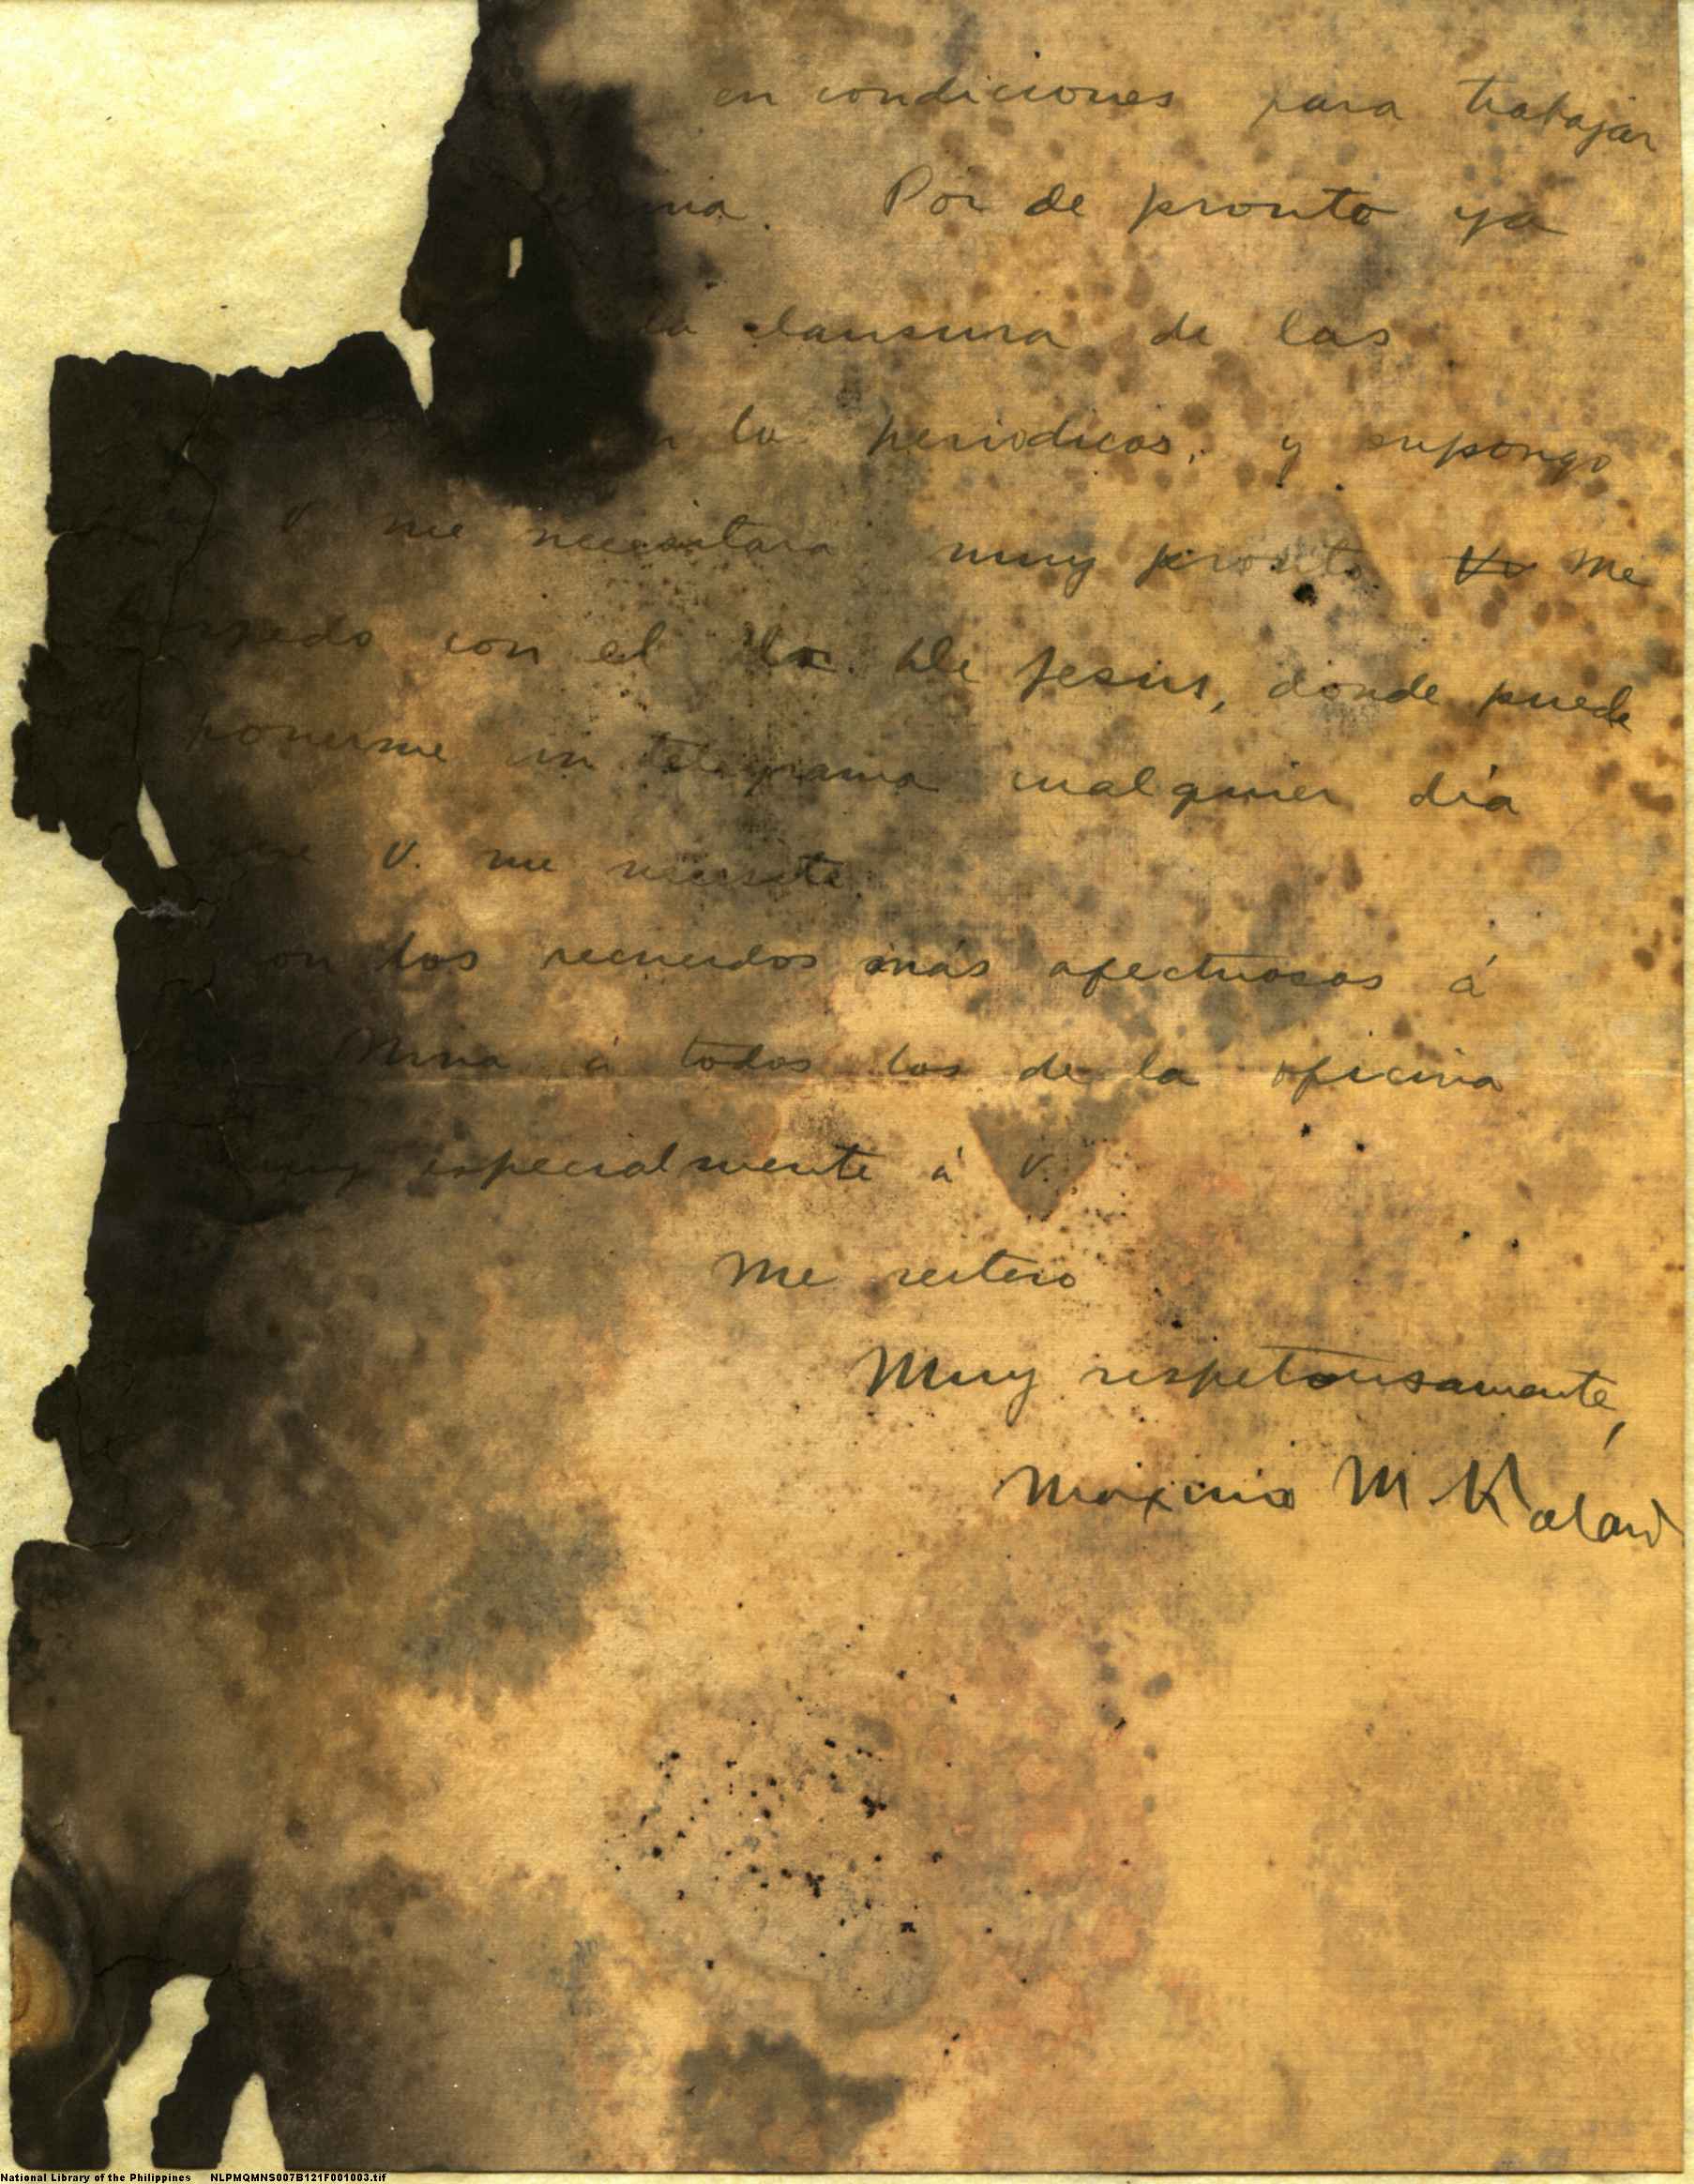 en condiciones para trabajar
Por de pronto ya
la clausura de las
lo periodicos, y supongo
V. me necesitara muy pronto. Me
hospedo con el Sr. De Jesus, donde puede
ponerme un telegrama cualquier día
que V. me necesite.
Con los recuerdos más afectuosos á
Mina á todos los de la oficina
muy especialmente á V.
Me reitero
Muy respetuosamente,
Maximo M Kalaw
National Library of the Philippines NLPMQMNS007B121F001003.tif